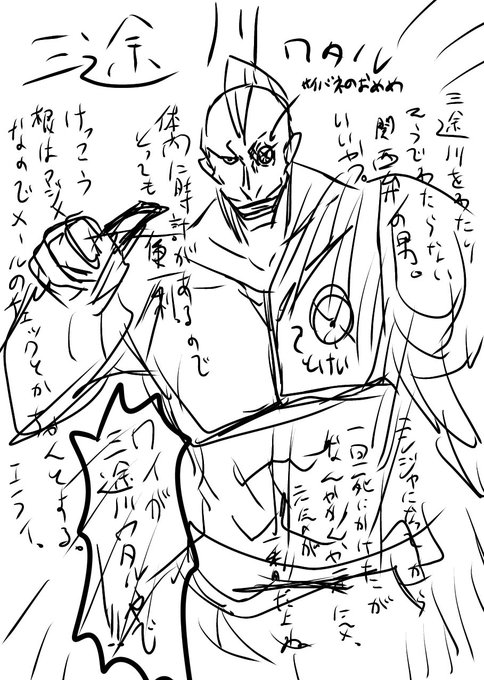 三途川
ワタル
サイバネのおめめ
三途川をわたり
そうでわたらない
関西弁の男。
いいやつ。
体内に時計があるので
とっても
便利
けっこう
根はマジメ
なのでメールのチェックとかちゃんとする。
エラい。
とけい
ニンジャになってから
一回死にかけたが
なんやかんや
ワイが
三途川ワタルや